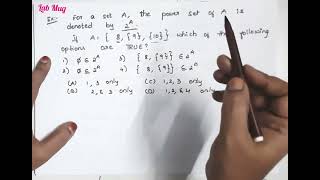 Lab Mug
Ex: For a set A, the power set of A is
denoted by 2^A.
If A = { 8, {9}, {10} } which of the following
options are TRUE?
1) ∅ ∈ 2^A 3) { 8, {9} } ∈ 2^A
2) ∅ ⊆ 2^A 4) { 8, {9} } ⊆ 2^A
(A) 1, 3 only (C) 1, 2, 3 only
(B) 2, 3 only (D) 1, 2, & 4 only